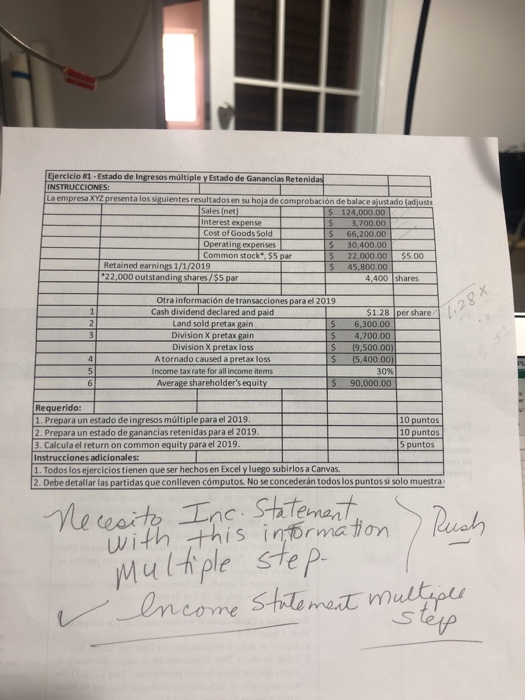 Ejercicio #1 - Estado de Ingresos múltiple y Estado de Ganancias Retenidas
INSTRUCCIONES:
La empresa XYZ presenta los siguientes resultados en su hoja de comprobación de balace ajustado (adjuste
Sales (net) $ 124,000.00
Interest expense $ 3,700.00
Cost of Goods Sold $ 66,200.00
Operating expenses $ 30,400.00
Common stock*, $5 par $ 22,000.00 $5.00
Retained earnings 1/1/2019 $ 45,800.00
*22,000 outstanding shares/$5 par 4,400 shares
Otra información de transacciones para el 2019
1 Cash dividend declared and paid $1.28 per share
1.28 x
2 Land sold pretax gain $ 6,300.00
3 Division X pretax gain $ 4,700.00
Division X pretax loss $ (9,500.00)
4 A tornado caused a pretax loss $ (5,400.00)
5 Income tax rate for all income items 30%
6 Average shareholder's equity $ 90,000.00
Requerido:
1. Prepara un estado de ingresos múltiple para el 2019. 10 puntos
2. Prepara un estado de ganancias retenidas para el 2019. 10 puntos
3. Calcula el return on common equity para el 2019. 5 puntos
Instrucciones adicionales:
1. Todos los ejercicios tienen que ser hechos en Excel y luego subirlos a Canvas.
2. Debe detallar las partidas que conlleven cómputos. No se concederán todos los puntos si solo muestra
Necesito Inc. Statement
with this information
Multiple step-
Rush
✓ Income Statement multiple
step